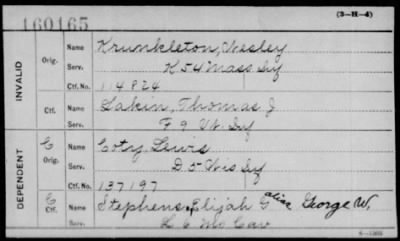 160165
(3-H-4)
INVALID
Orig.
Name Krunkleton, Wesley
Serv. K 54 Mass Inf
Ctf. No. 114824
Ctf.
Name Lakin, Thomas J
Serv. F 9 Vt. Inf
DEPENDENT
C
Orig.
Name Coty Lewis
Serv. D 5 Wis Inf
Ctf. No. 137197
C
Ctf.
Name Stephens, Elijah G alias George W.
Serv. L 6 Mo Cav